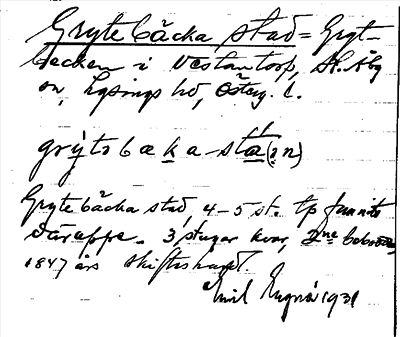 Grytebäcka stad = Gryt-
becken i Västantorp, St. Åby
sn, Lysings hd, Österg. l.
grytəbæka-sta(ən)
Grytebäcka stad, 4-5 st. tp funnits
däruppe. 3 stugor kvar, 2ne bebodda,
1847 års skifteskarta.
Emil 1931